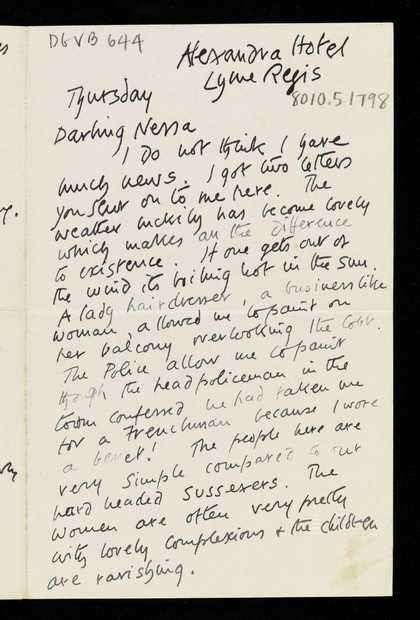 DGVB 644
Alexandra Hotel
Lyme Regis
8010.5.1798
Thursday
Darling Nessa
I do not think I have
much news. I got two letters
you sent on to me here. The
weather luckily has become lovely
which makes all the difference
to existence. If one gets out of
the wind its boiling hot in the sun.
A lady hairdresser, a business like
woman, allowed me to paint on
her balcony overlooking the Cobb.
The Police allow me to paint
though the head policeman in the
town confessed he had taken me
for a Frenchman because I wore
a beret! The people here are
very simple compared to our
hard headed Sussexers. The
women are often very pretty
with lovely complexions & the children
are ravishing.